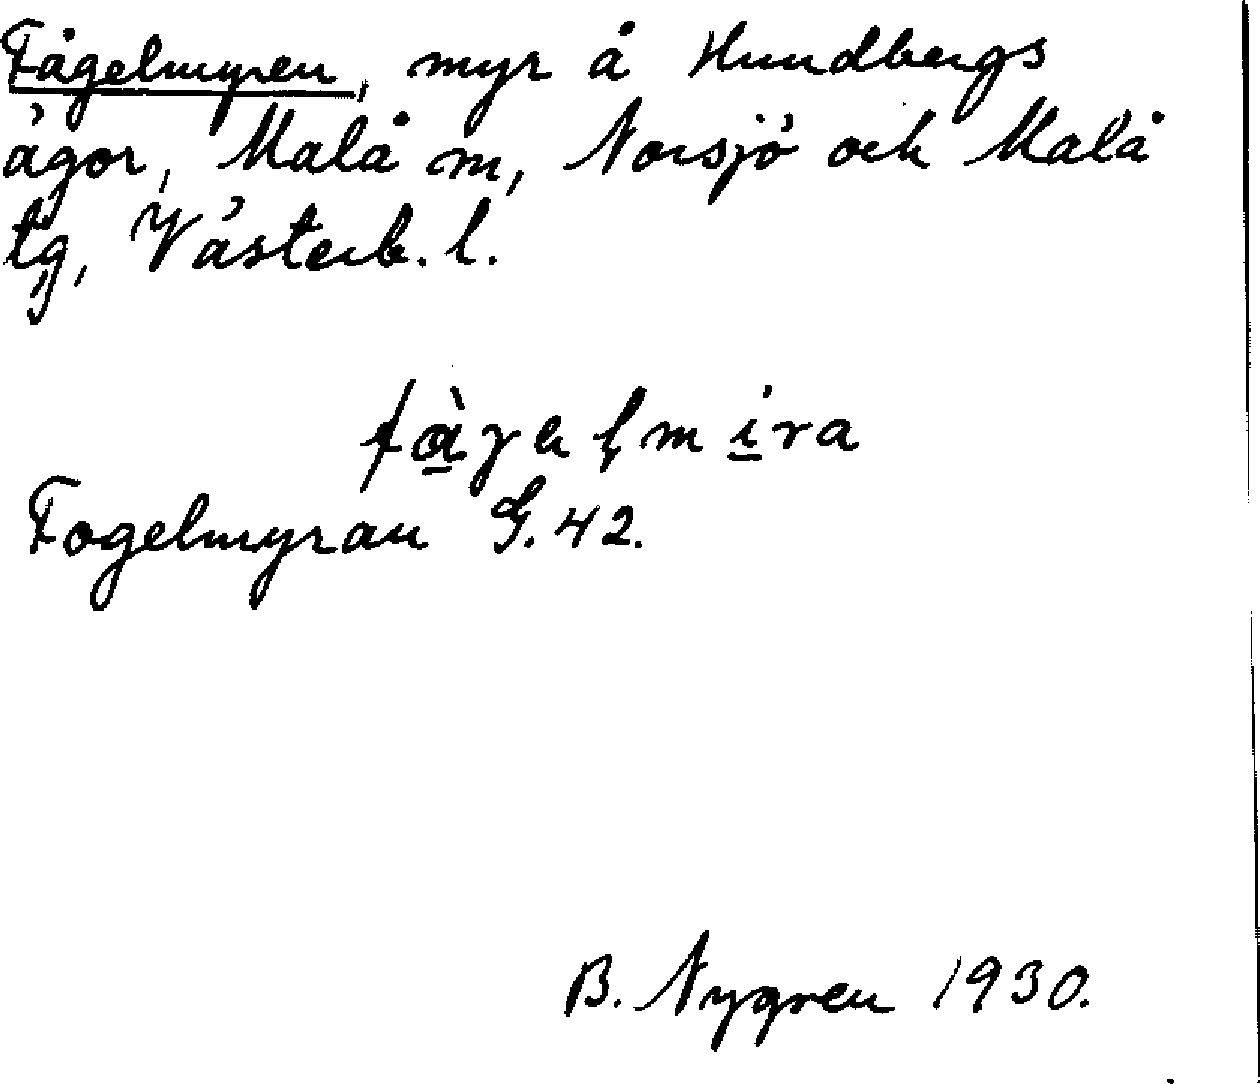 Fågelmyren, myr å Hundbergs
ägor, Malå m, Norsjö och Malå
tg, Västerb. l.
fàγəl̥mirа
Fogelmyran G.42.
B. Nygren 1930.